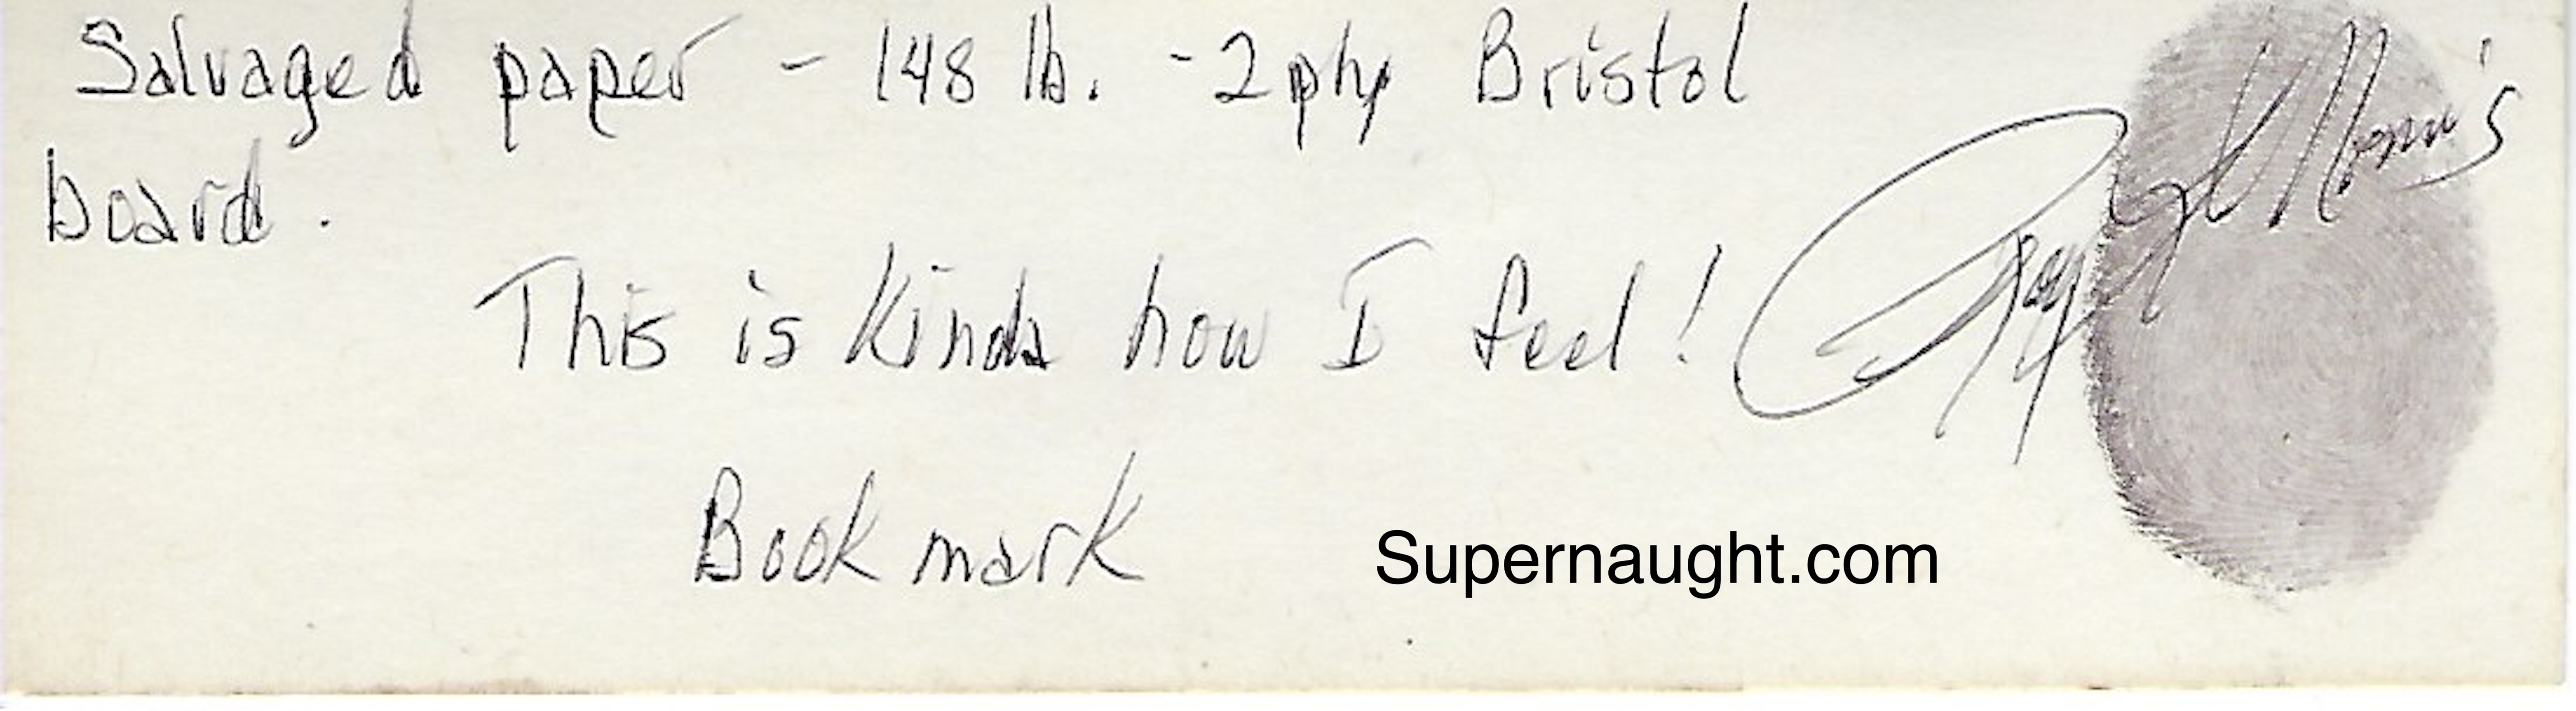 Salvaged paper - 148 lb. - 2 ply Bristol
board.
This is Kinda how I feel!
Book mark
Supernaught.com